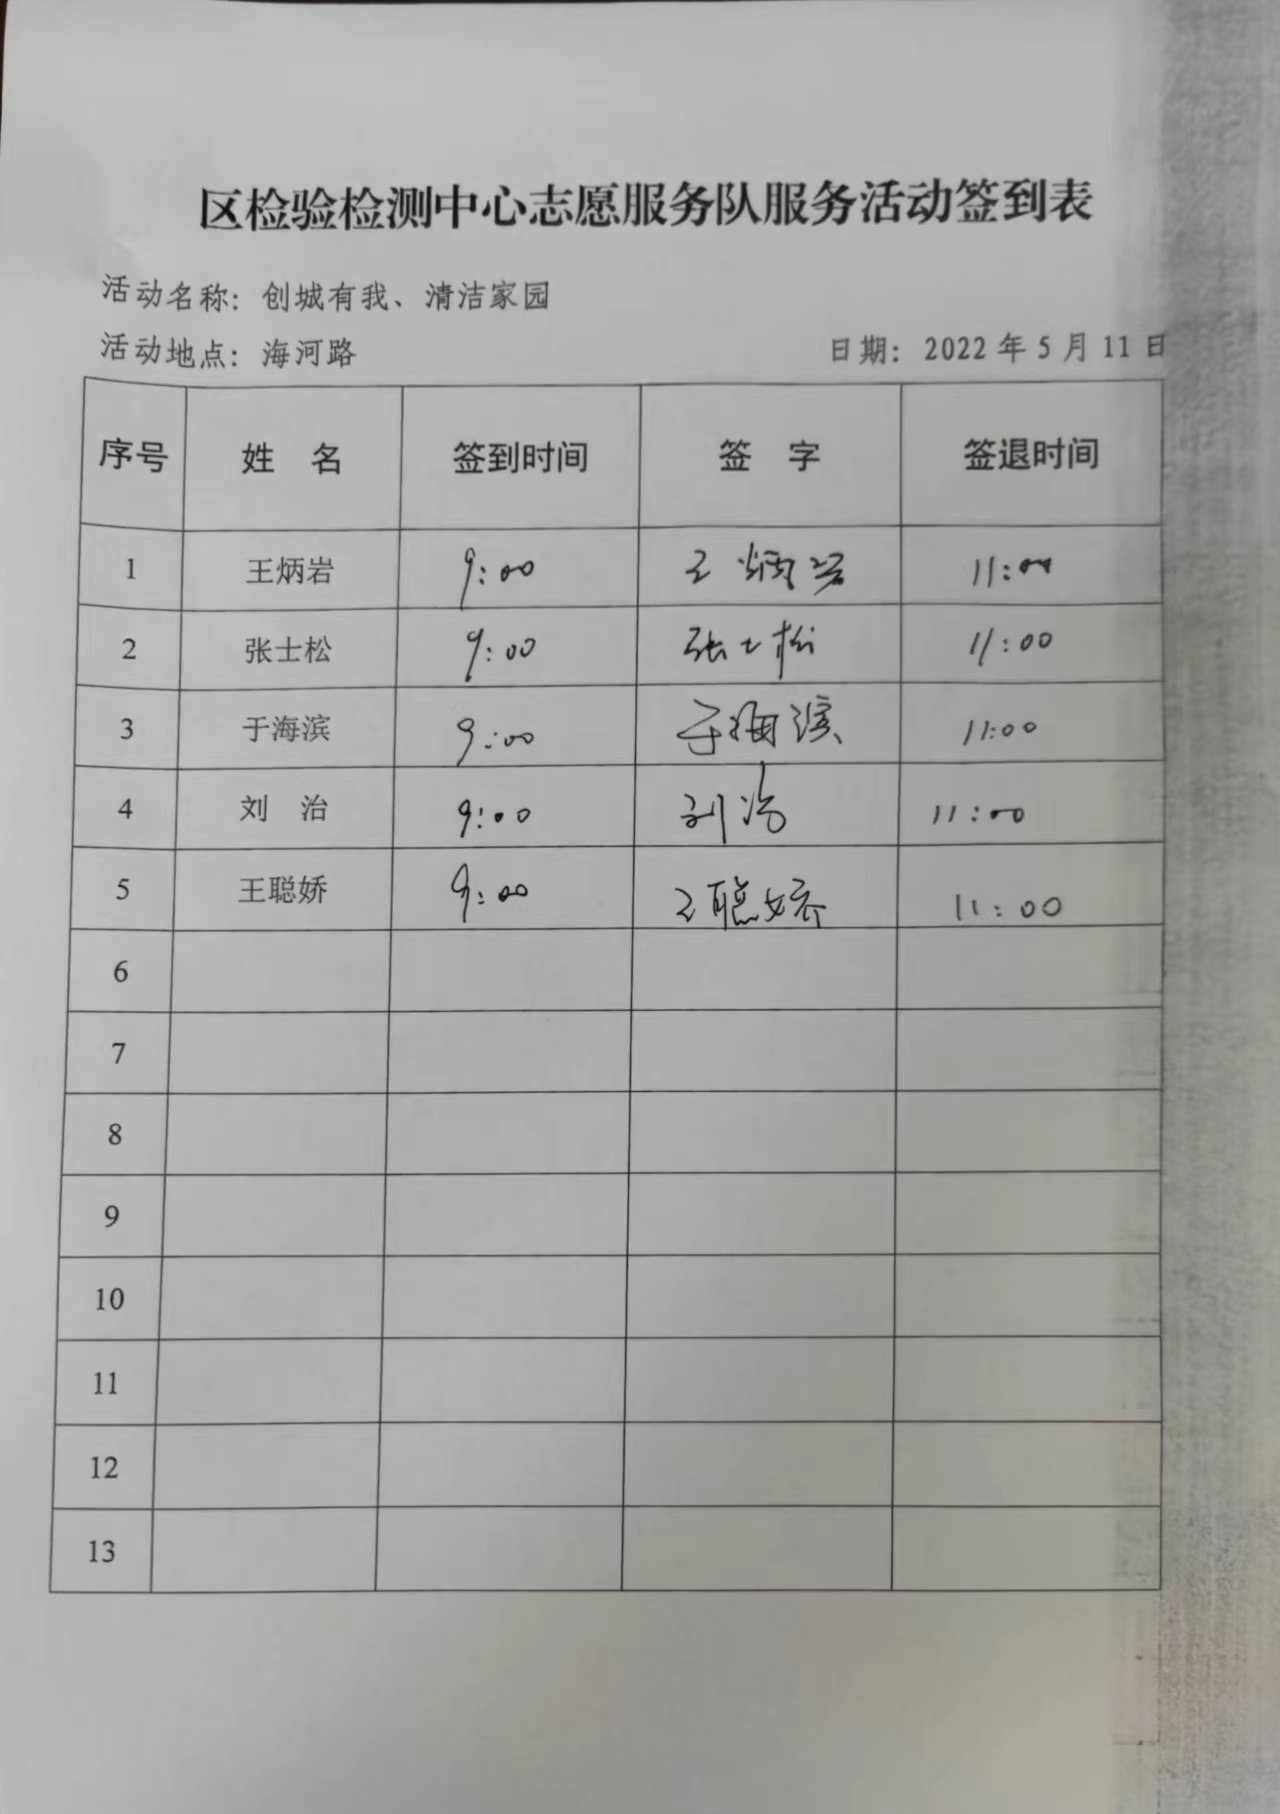 区检验检测中心志愿服务队服务活动签到表
活动名称：创城有我、清洁家园
活动地点：海河路 日期：2022年5月11日
序号 姓 名 签到时间 签 字 签退时间
1 王炳岩 9:00 王炳岩 11:00
2 张士松 9:00 张士松 11:00
3 于海滨 9:00 于海滨 11:00
4 刘 治 9:00 刘治 11:00
5 王聪娇 9:00 王聪娇 11:00
6
7
8
9
10
11
12
13